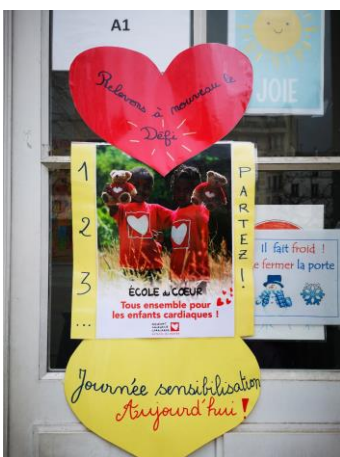 A1
Relevons à nouveau le
Défi
JOIE
1
2
3
...
PARTEZ!
ÉCOLE du CŒUR
Tous ensemble pour
les enfants cardiaques !
Il fait froid !
fermer la porte
Journée sensibilisation
Aujourd'hui !